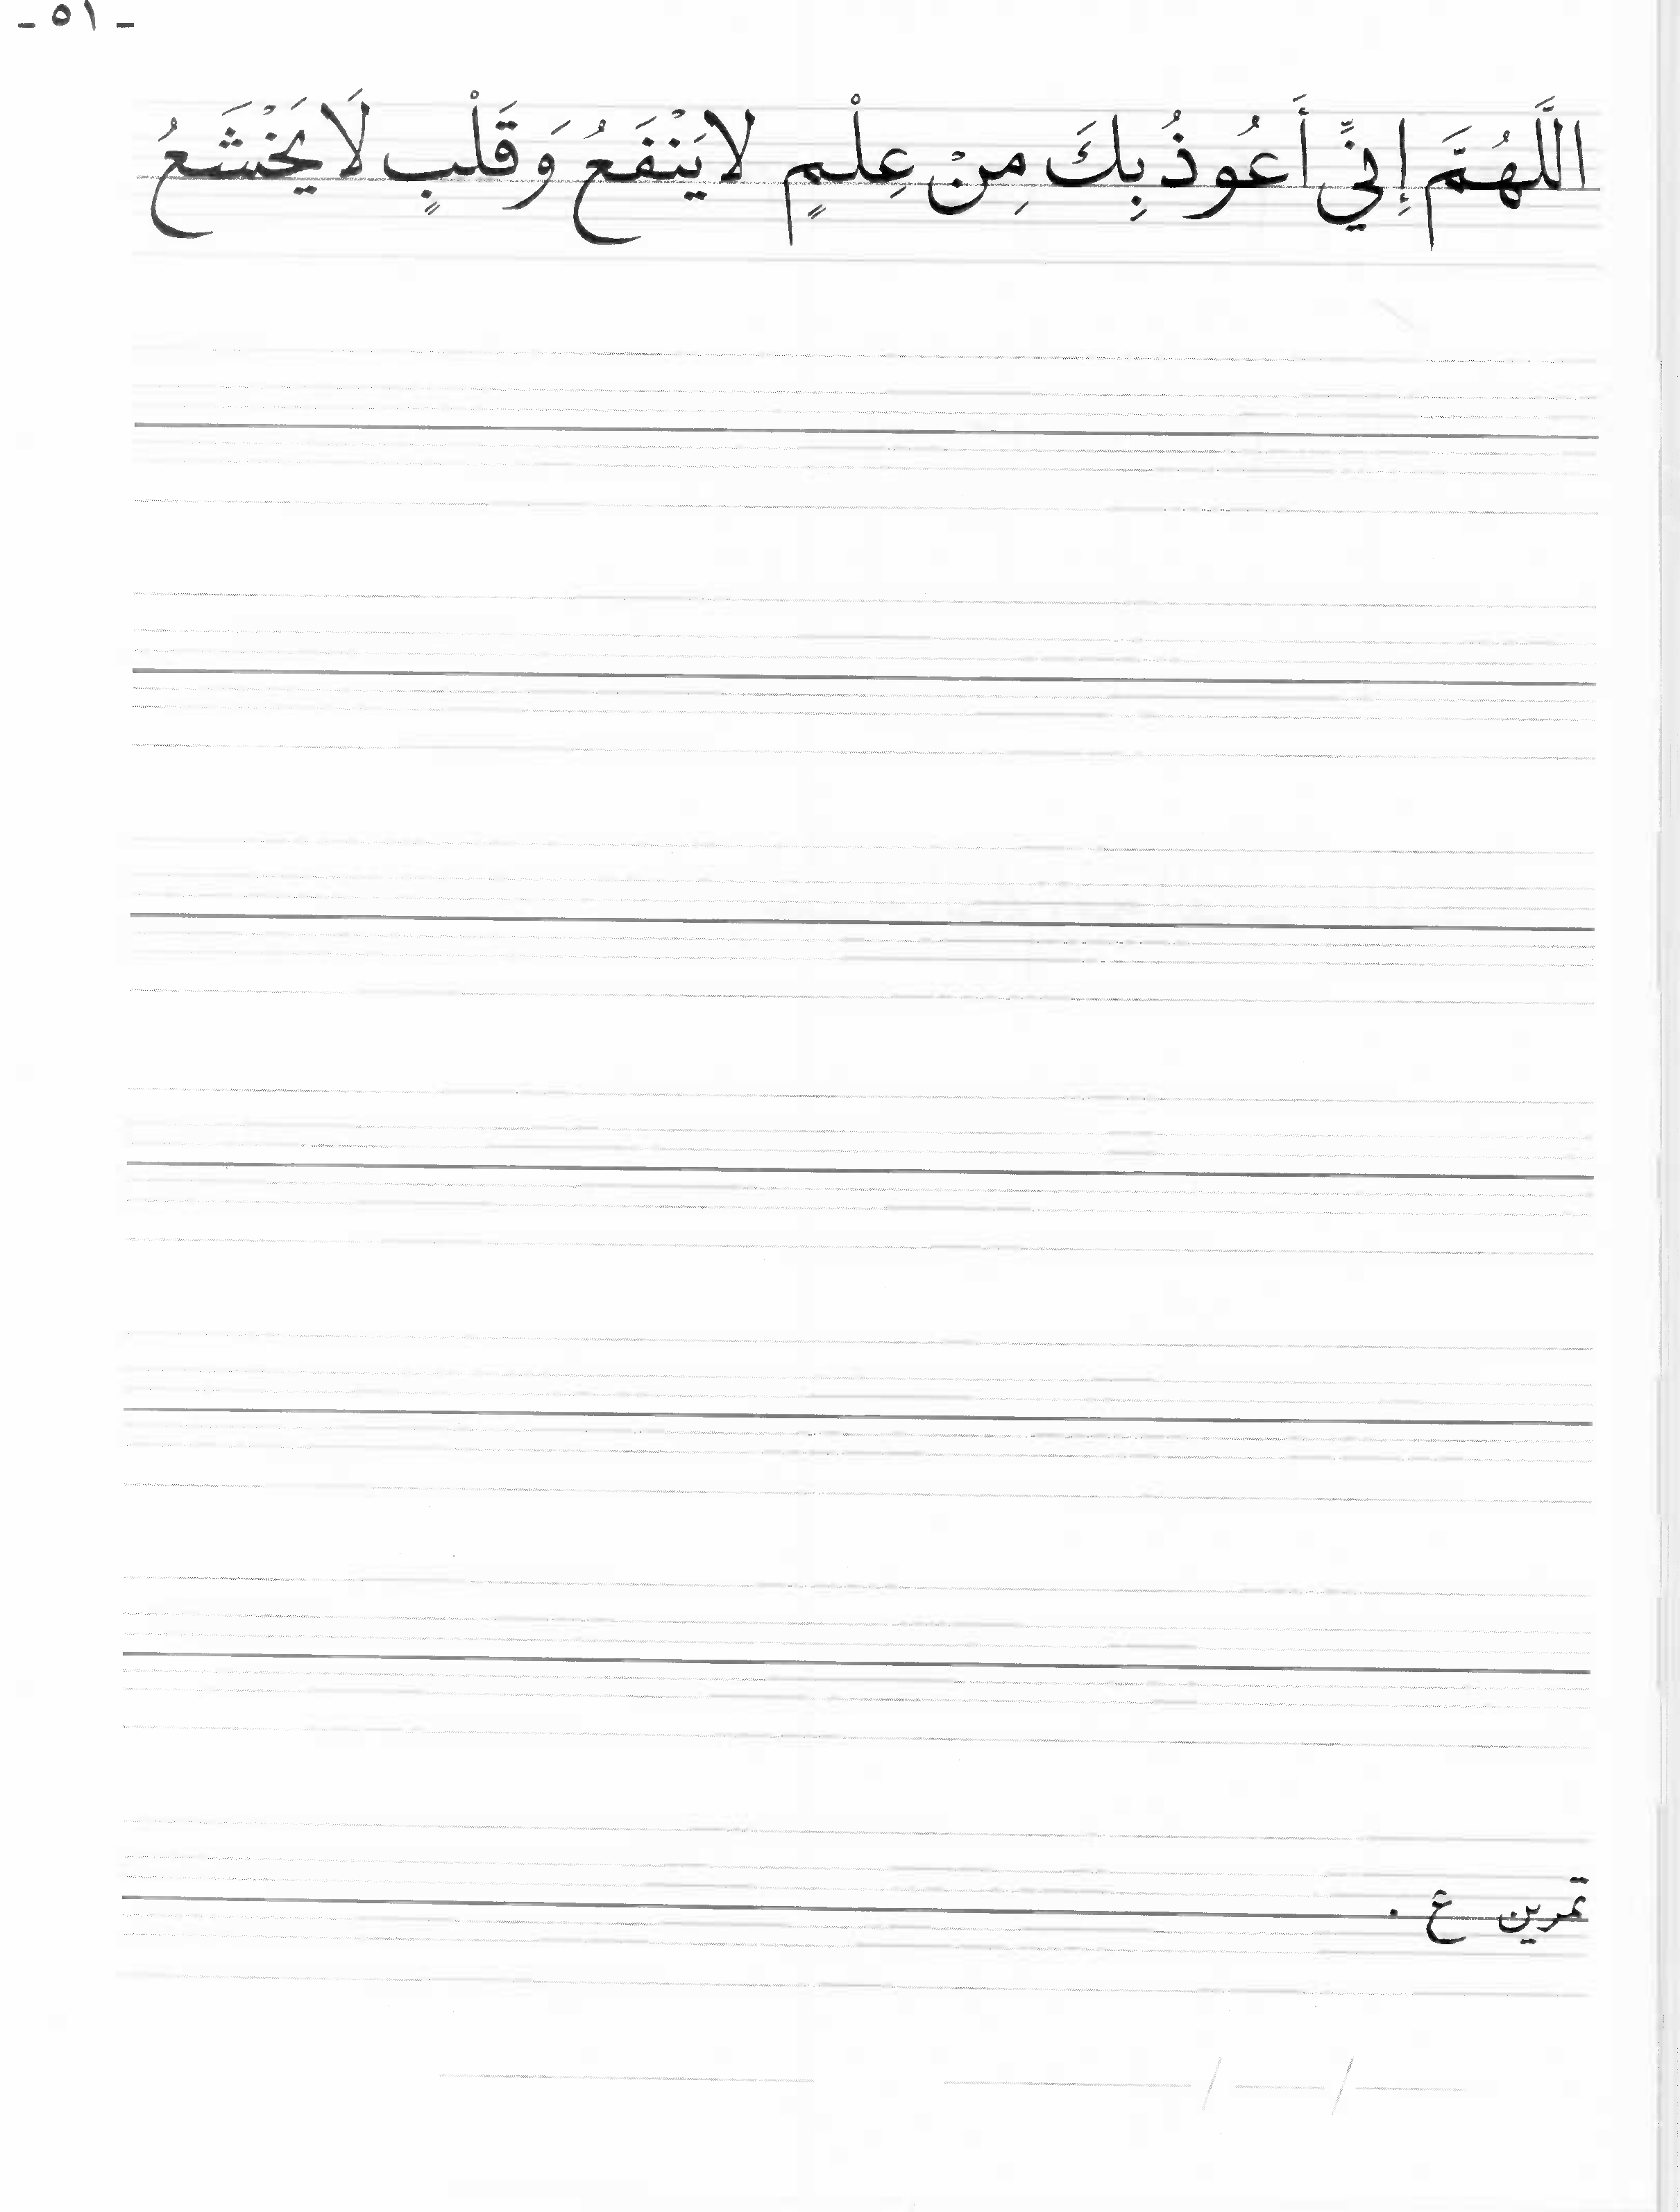 - ٥١ -
اللَّهُمَّ إِنِّي أَعُوذُ بِكَ مِنْ عِلْمٍ لا يَنْفَعُ وَقَلْبٍ لَا يَخْشَعُ
تمرين ع .